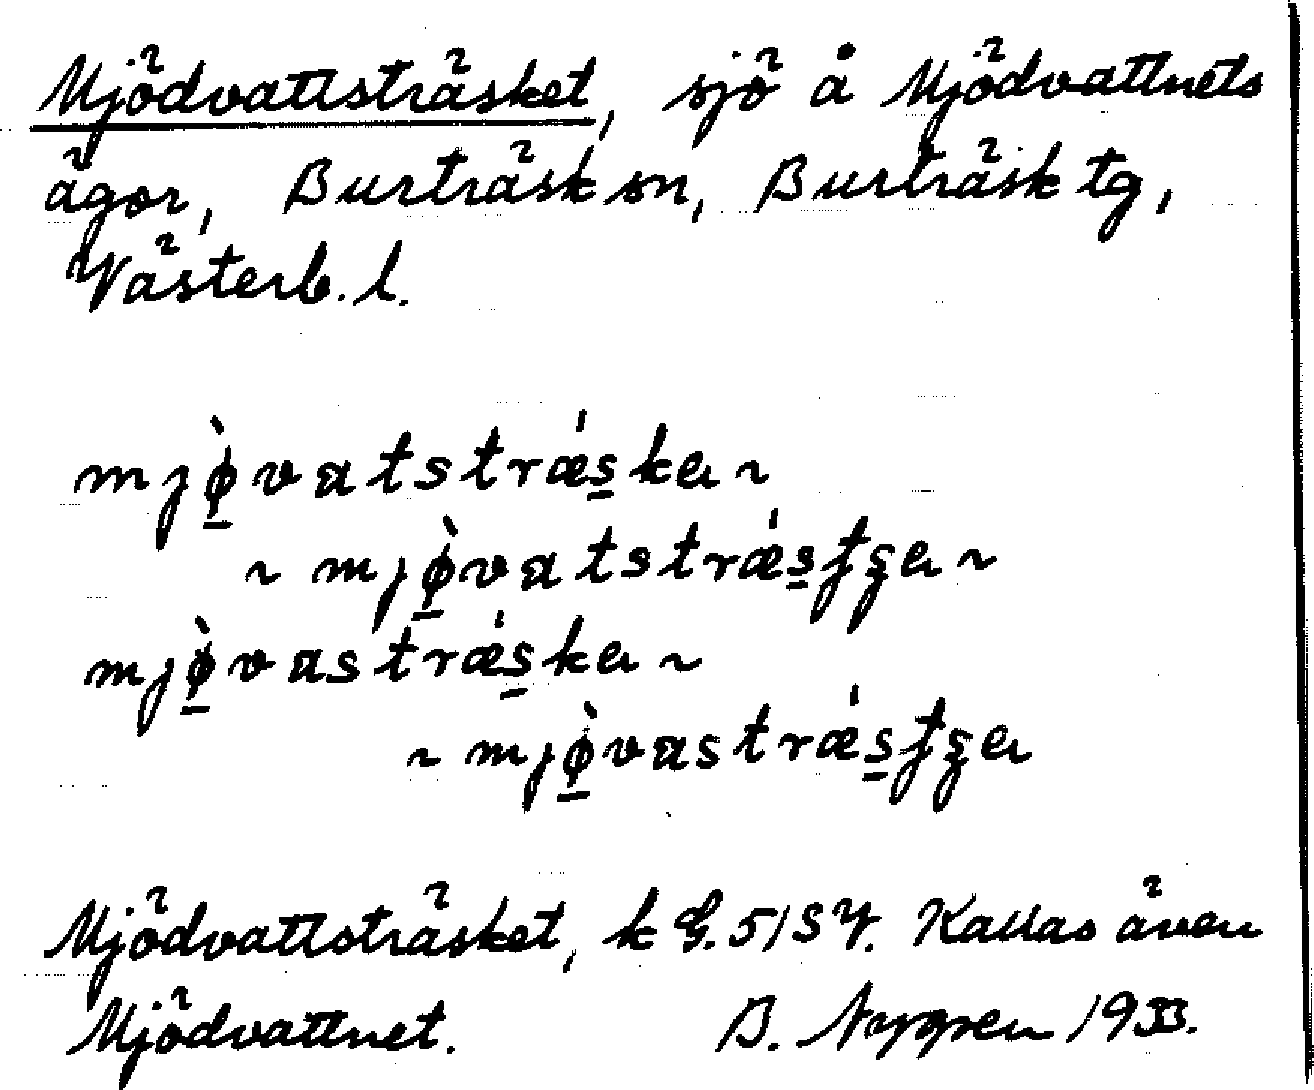 Mjödvattsträsket, sjö å Mjödvattnets
ägor, Burträsk sn, Burträsk tg,
Västerb. l.
mjø̱̀vatstrǽs̱ka ~
~ mjø̱̀vatstrǽs̱ʈʂa ~
mjø̱̀vastrǽs̱ka ~
~ mjø̱̀vastrǽs̱ʈʂa
Mjödvattsträsket, k G. 51 S Y. Kallas även
Mjödvattnet. B. Nygren 1933.